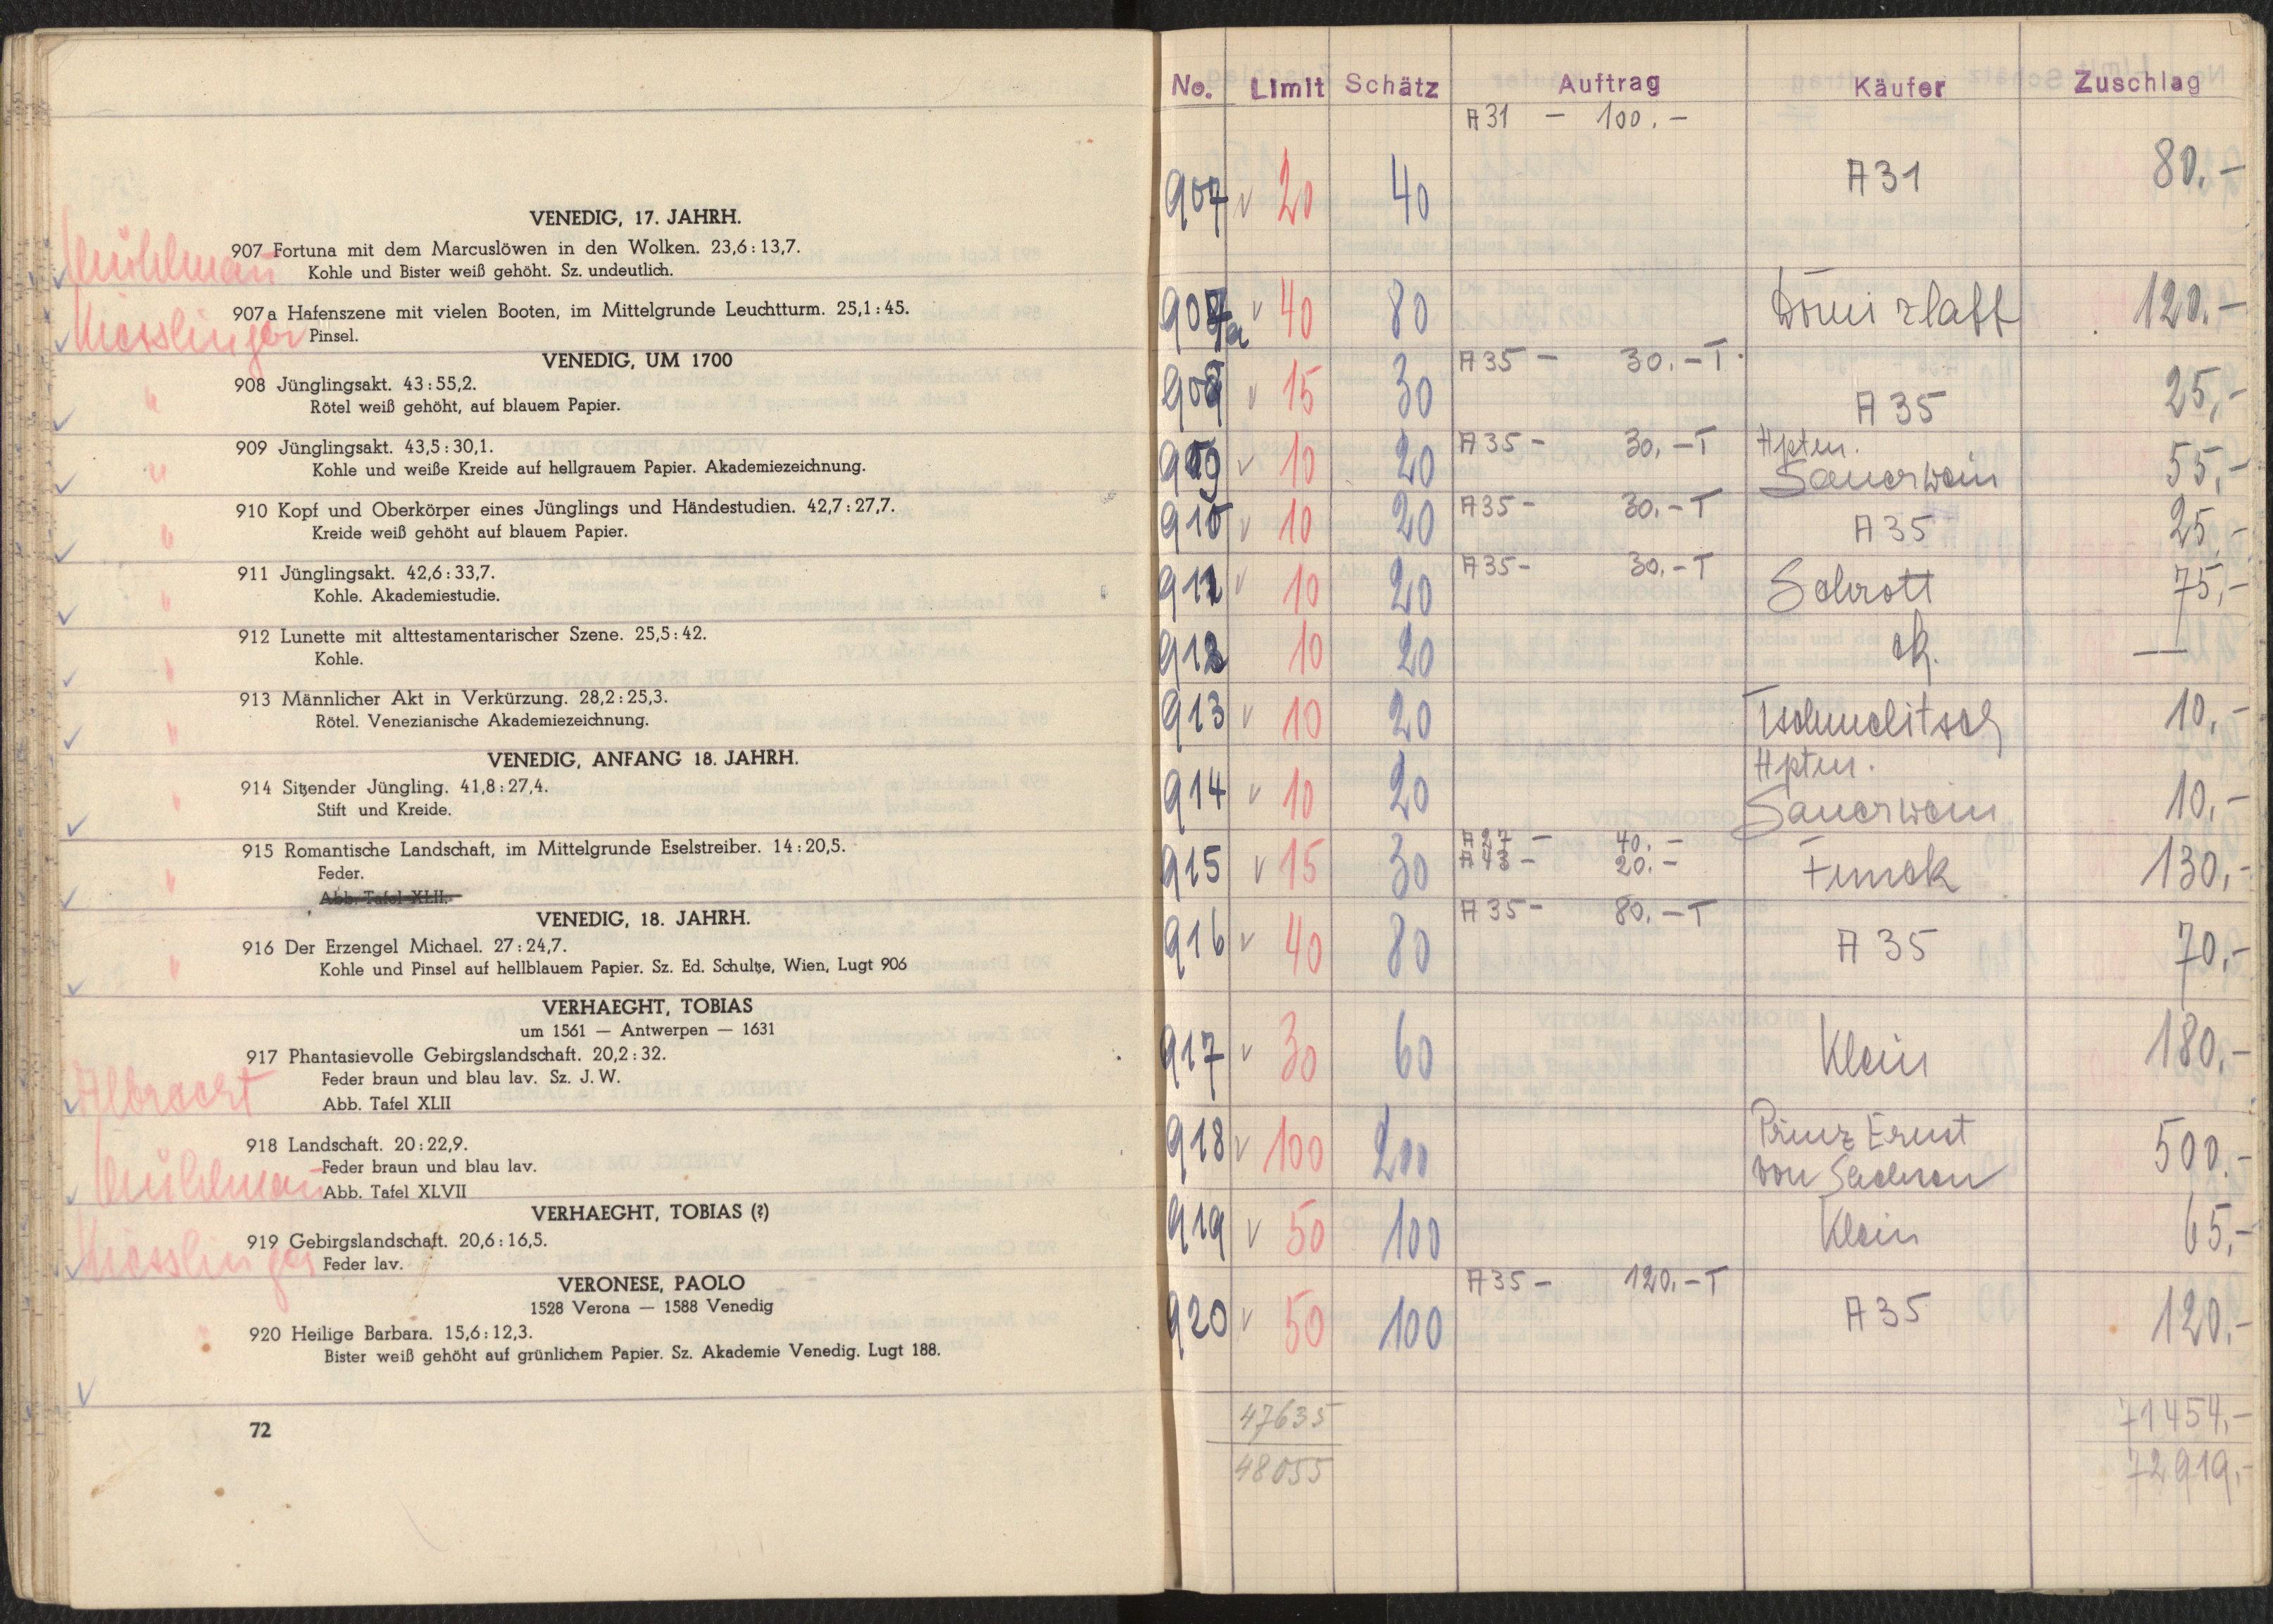 VENEDIG, 17. JAHRH.
907 Fortuna mit dem Marcuslöwen in den Wolken. 23,6:13,7.
Kohle und Bister weiß gehöht. Sz. undeutlich.
907a Hafenszene mit vielen Booten, im Mittelgrunde Leuchtturm. 25,1:45.
Kiesslinger Pinsel.
VENEDIG, UM 1700
908 Jünglingsakt. 43:55,2.
Rötel weiß gehöht, auf blauem Papier.
909 Jünglingsakt. 43,5:30,1.
Kohle und weiße Kreide auf hellgrauem Papier. Akademiezeichnung.
910 Kopf und Oberkörper eines Jünglings und Händestudien. 42,7:27,7.
Kreide weiß gehöht auf blauem Papier.
911 Jünglingsakt. 42,6:33,7.
Kohle. Akademiestudie.
912 Lunette mit alttestamentarischer Szene. 25,5:42.
Kohle.
913 Männlicher Akt in Verkürzung. 28,2:25,3.
Rötel. Venezianische Akademiezeichnung.
VENEDIG, ANFANG 18. JAHRH.
914 Sitzender Jüngling. 41,8:27,4.
Stift und Kreide.
915 Romantische Landschaft, im Mittelgrunde Eselstreiber. 14:20,5.
Feder.
Abb. Tafel XLII.
VENEDIG, 18. JAHRH.
916 Der Erzengel Michael. 27:24,7.
Kohle und Pinsel auf hellblauem Papier. Sz. Ed. Schultze, Wien, Lugt 906
VERHAEGHT, TOBIAS
um 1561 — Antwerpen — 1631
917 Phantasievolle Gebirgslandschaft. 20,2:32.
Feder braun und blau lav. Sz. J. W.
Abb. Tafel XLII
918 Landschaft. 20:22,9.
Feder braun und blau lav.
Abb. Tafel XLVII
VERHAEGHT, TOBIAS (?)
919 Gebirgslandschaft. 20,6:16,5.
Kiesslinger Feder lav.
VERONESE, PAOLO
1528 Verona — 1588 Venedig
920 Heilige Barbara. 15,6:12,3.
Bister weiß gehöht auf grünlichem Papier. Sz. Akademie Venedig. Lugt 188.
72
No. Limit Schätz Auftrag Käufer Zuschlag
A31 — 100.—
907 v 20 40 A31 80.—
907a v 40 80 120.—
A35 — 30.—T
908 v 15 30 A35 25,—
A35 — 30,—T Hptm.
909 v 10 20 Sauerwein 55,—
A35 — 30.—T
910 v 10 20 A35 25,—
A35 — 30,—T
911 v 10 20 Schrott 75,—
912 10 20 —
913 v 10 20 10,—
Hptm.
914 v 10 20 Sauerwein 10,—
A27 — 40.—
A43 — 20.—
915 v 15 30 130,—
A35 — 80.—T
916 v 40 80 A35 70,—
917 v 30 60 Klein 180,—
Prinz Ernst
918 v 100 200 von Sachsen 500.—
919 v 50 100 Klein 65,—
A35 — 120.—T
920 v 50 100 A35 120,—
47635 71454,—
48055 72919,—